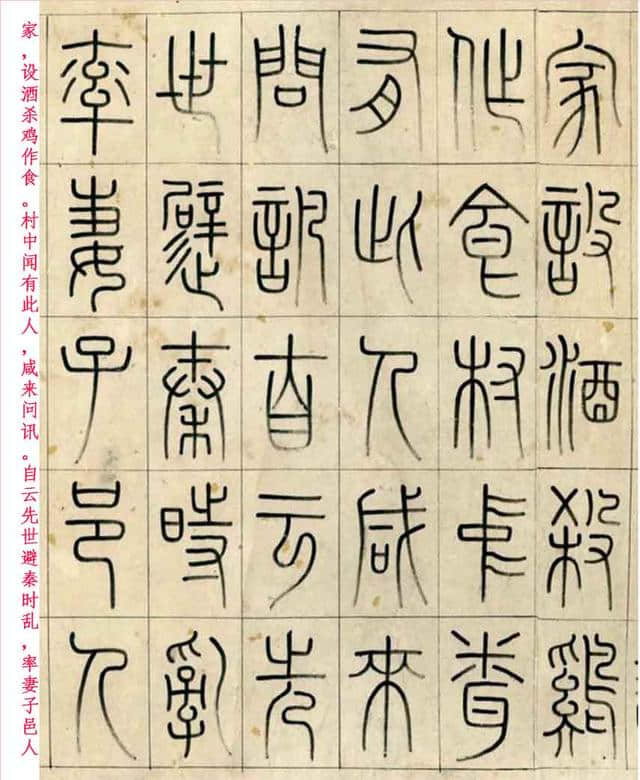 家設酒殺雞
作食村中聞
有此人咸來
問訊自云先
世避秦時亂
率妻子邑人
家，设酒杀鸡作食。村中闻有此人，咸来问讯。自云先世避秦时乱，率妻子邑人